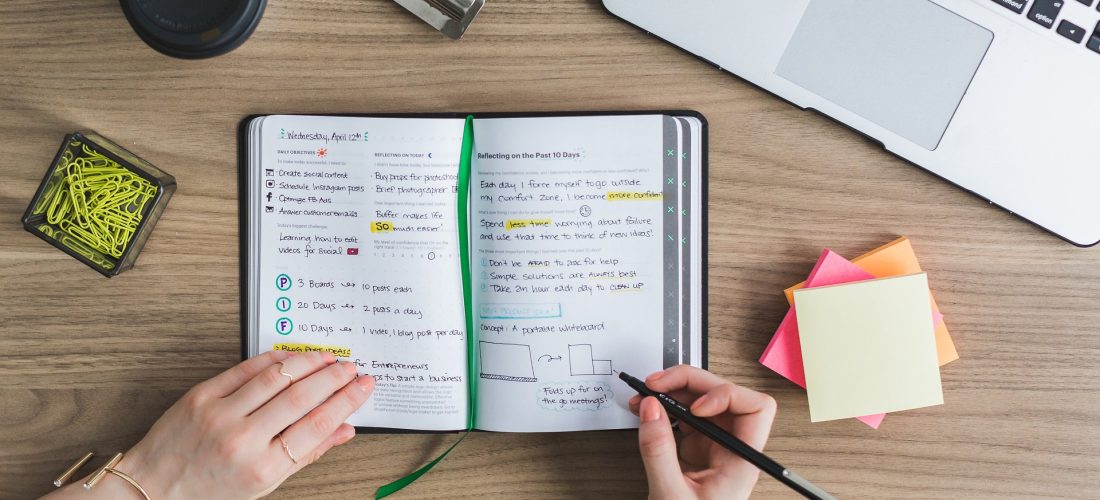 Wednesday, April 12th
DAILY OBJECTIVES
To make today successful, I need to:
Create social content
Schedule Instagram posts
Optimize FB Ads
Answer customer emails
Today's biggest challenge:
Learning how to edit
videos for social
REFLECTING ON TODAY
Buy props for photoshoot
Brief photographer
One important thing I learned today:
Buffer makes life
SO much easier!
My level of confidence that I'm on the
right track
P 3 Boards 10 posts each
I 20 Days 2 posts a day
F 10 Days 1 video, 1 blog post per day
BLOG POST IDEAS
for Entrepreneurs
to start a business
Reflecting on the Past 10 Days
Each day I force myself to go outside
my comfort zone, I become more confident
Spend less time worrying about failure
and use that time to think of new ideas!
The three most important things I learned:
1 Don't be AFRAID to ask for help
2 Simple solutions are ALWAYS best
3 Take an hour each day to CLEAN UP
NEW PRODUCT IDEA!
Concept: A portable whiteboard
Folds up for on
the go meetings!